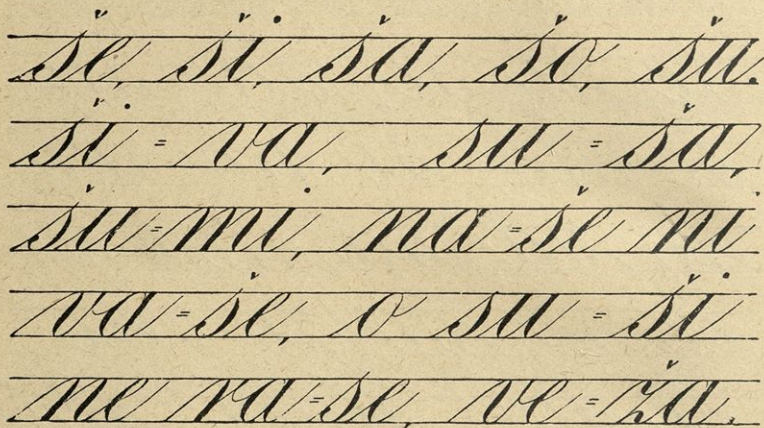 še, ši, ša, šo, šu.
ši = va, su = ša,
šu = mi, na = še ni
va = še, o su = ši
ne ra = se, ve = ža.